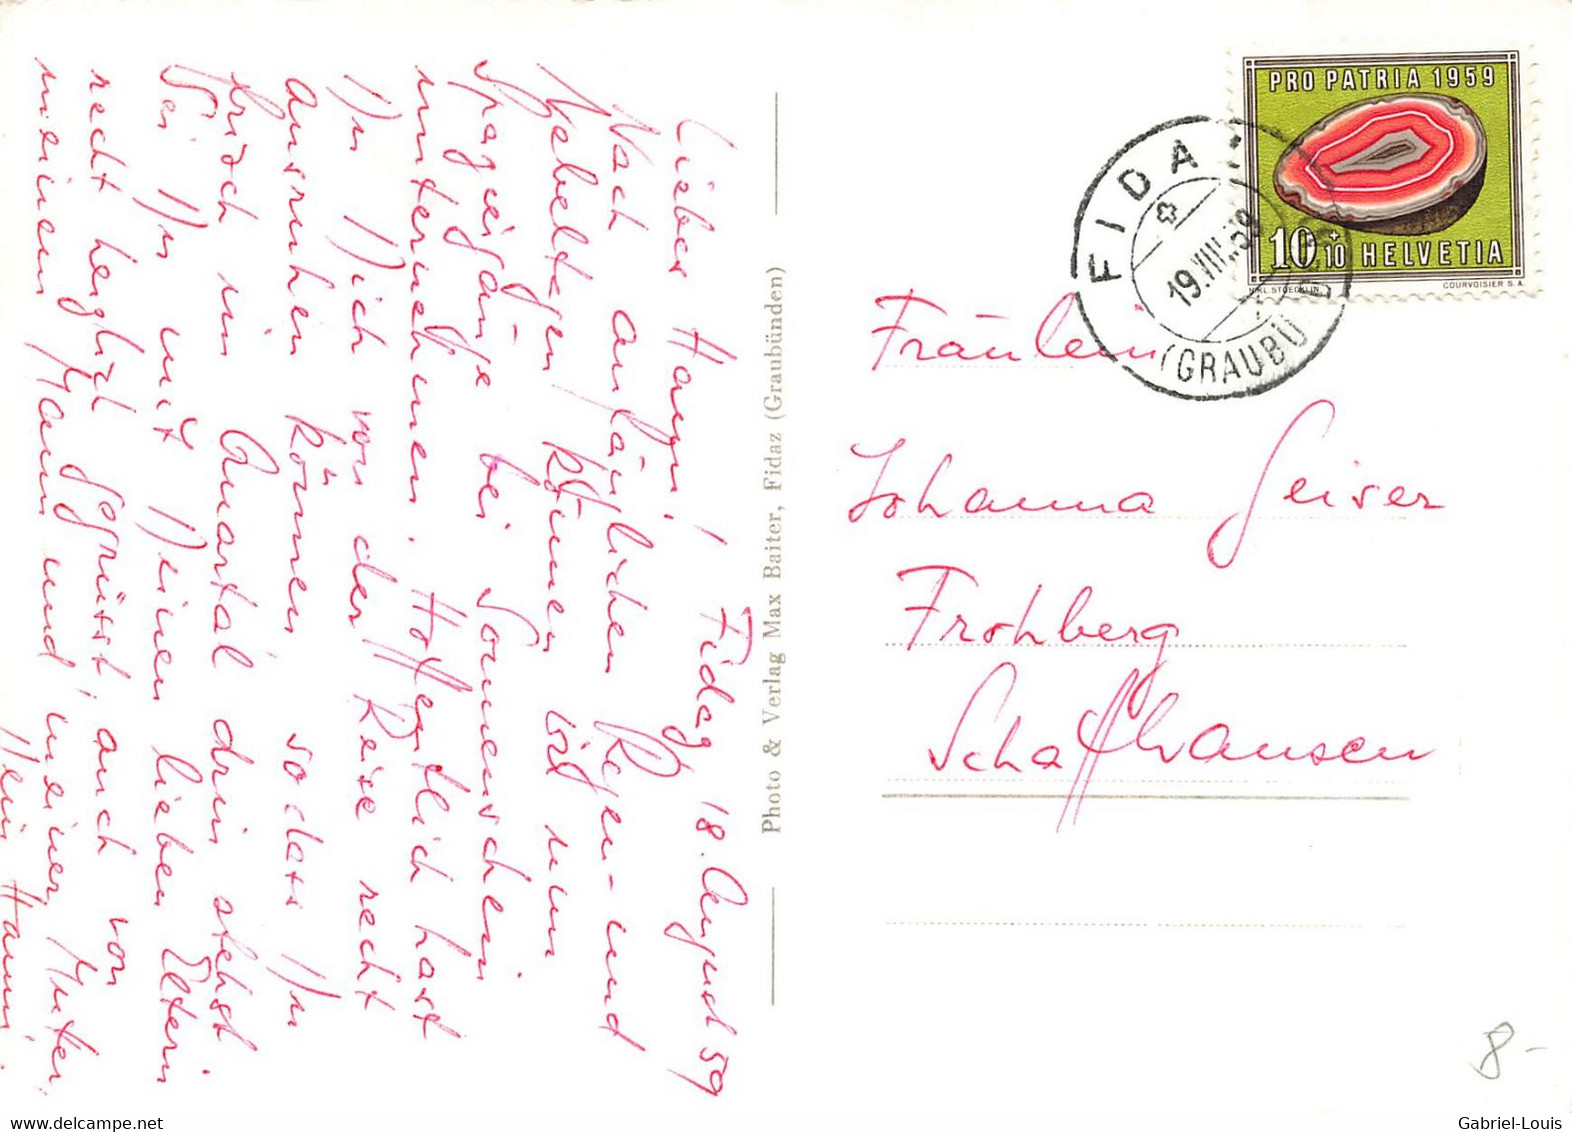 Lieber Hanni! Fidaz 18. August 59
Nach anfänglichen Regen- und
Nebeltagen können wir nun
Spaziergänge bei Sonnenschein
unternehmen. Hoffentlich hast
Du Dich von der Reise recht
ausruhen können, sodass Du
frisch im Quartal drin stehst.
Sei Du mit Deinen lieben Eltern
recht herzlich gegrüsst, auch von
meinem Mann und meiner Mutter.
Dein Hanni.
Photo & Verlag Max Baiter, Fidaz (Graubünden)
PRO PATRIA 1959
10+10 HELVETIA
N'KL. STOECKLIN. COURVOISIER S.A.
FIDAZ
19.VIII.59
(GRAUBÜNDEN)
Fräulein
Johanna Geiser
Frohberg
Schaffhausen
8-
Gabriel-Louis